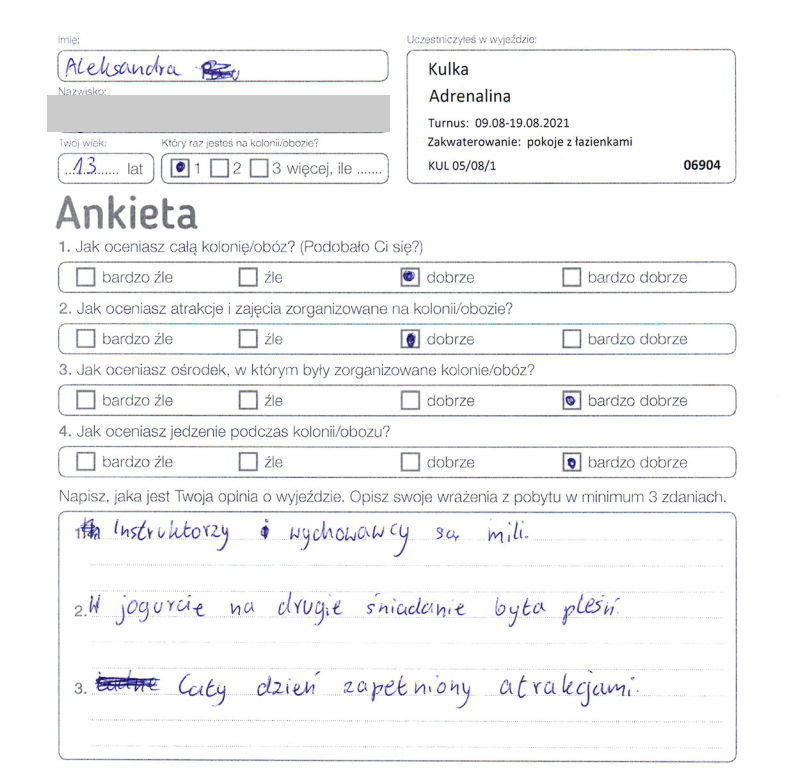 Imię:
Aleksandra
Uczestniczyłeś w wyjeździe:
Kulka
Adrenalina
Turnus: 09.08-19.08.2021
Zakwaterowanie: pokoje z łazienkami
KUL 05/08/1 06904
Nazwisko:
Twój wiek:
13 lat
Który raz jesteś na kolonii/obozie?
1 2 3 więcej, ile .......
Ankieta
1. Jak oceniasz całą kolonię/obóz? (Podobało Ci się?)
bardzo źle źle dobrze bardzo dobrze
2. Jak oceniasz atrakcje i zajęcia zorganizowane na kolonii/obozie?
bardzo źle źle dobrze bardzo dobrze
3. Jak oceniasz ośrodek, w którym były zorganizowane kolonie/obóz?
bardzo źle źle dobrze bardzo dobrze
4. Jak oceniasz jedzenie podczas kolonii/obozu?
bardzo źle źle dobrze bardzo dobrze
Napisz, jaka jest Twoja opinia o wyjeździe. Opisz swoje wrażenia z pobytu w minimum 3 zdaniach.
1. Instruktorzy i wychowawcy są mili.
2. W jogurcie na drugie śniadanie była pleśń.
3. Cały dzień zapełniony atrakcjami.